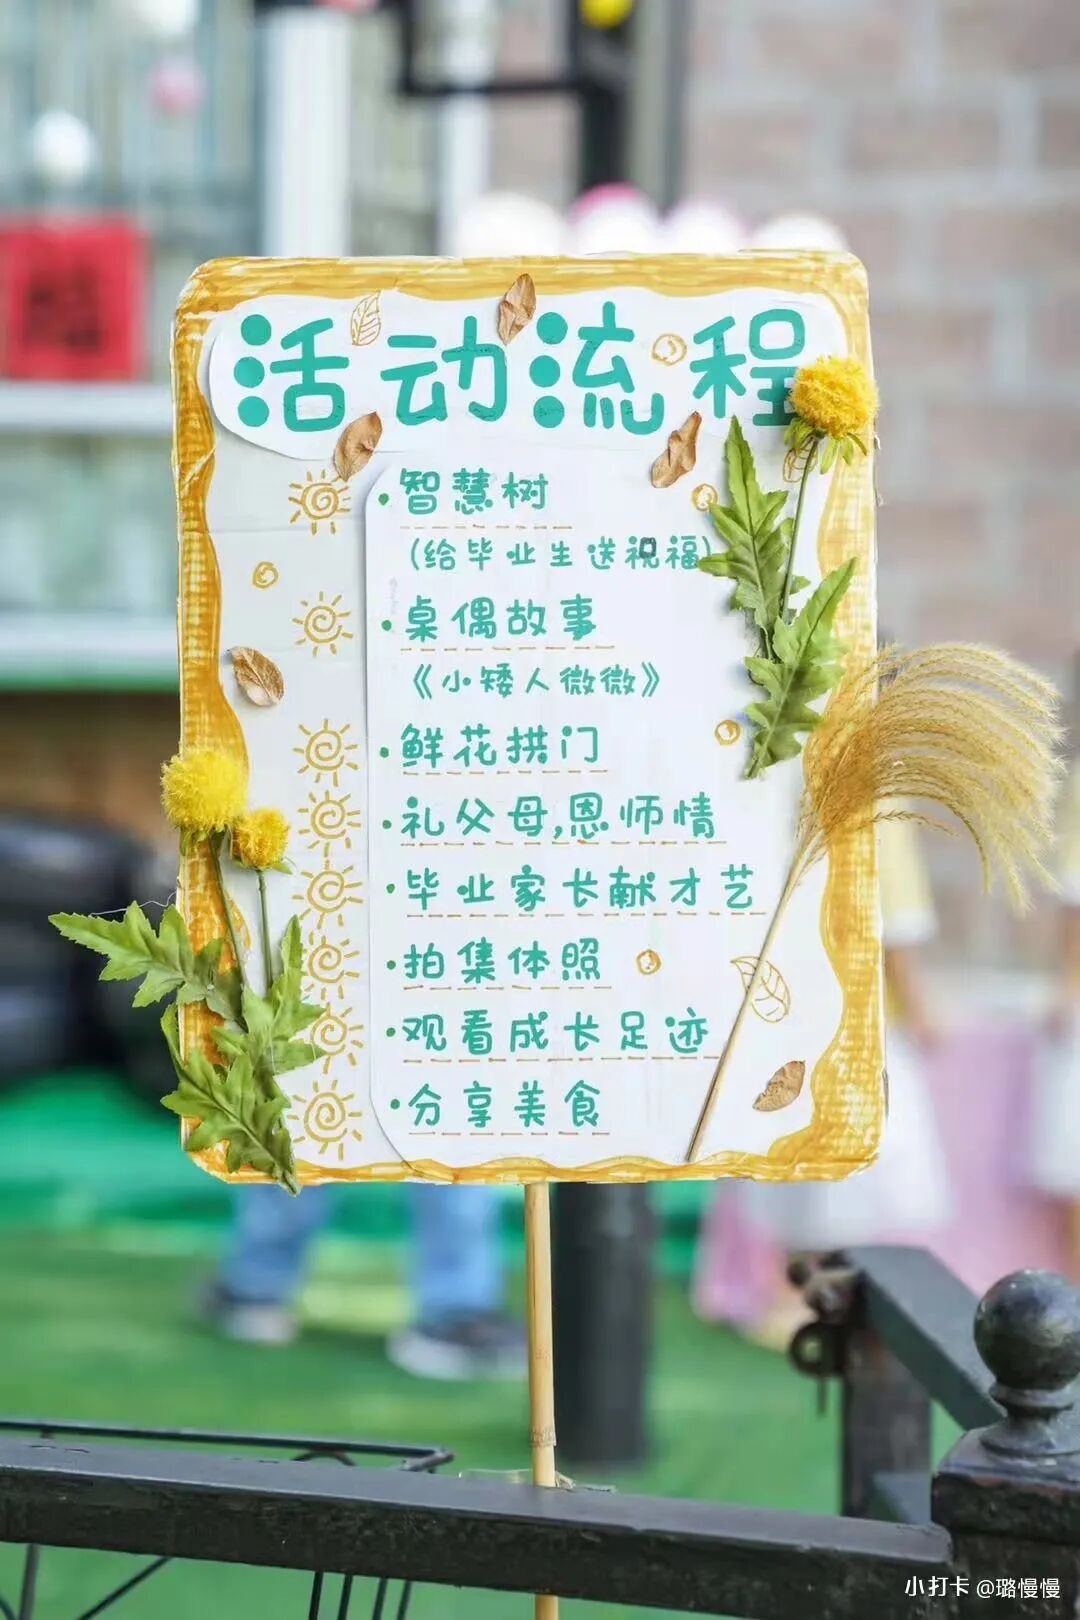 活动流程
·智慧树
(给毕业生送祝福)
·桌偶故事
《小矮人微微》
·鲜花拱门
·礼父母,恩师情
·毕业家长献才艺
·拍集体照
·观看成长足迹
·分享美食
小打卡 @璐慢慢